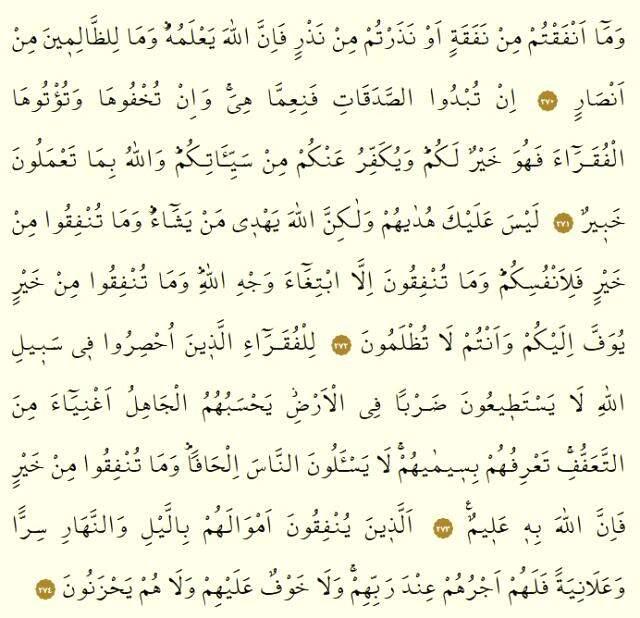 وَمَٓا اَنْفَقْتُمْ مِنْ نَفَقَةٍ اَوْ نَذَرْتُمْ مِنْ نَذْرٍ فَاِنَّ اللّٰهَ يَعْلَمُهُۜ وَمَا لِلظَّالِمٖينَ مِنْ
اَنْصَارٍ ٢٧٠ اِنْ تُبْدُوا الصَّدَقَاتِ فَنِعِمَّا هِيَۚ وَاِنْ تُخْفُوهَا وَتُؤْتُوهَا
الْفُقَرَٓاءَ فَهُوَ خَيْرٌ لَكُمْۜ وَيُكَفِّرُ عَنْكُمْ مِنْ سَيِّـَٔاتِكُمْۜ وَاللّٰهُ بِمَا تَعْمَلُونَ
خَبٖيرٌ ٢٧١ لَيْسَ عَلَيْكَ هُدٰيهُمْ وَلٰكِنَّ اللّٰهَ يَهْدٖي مَنْ يَشَٓاءُۜ وَمَا تُنْفِقُوا مِنْ
خَيْرٍ فَلِاَنْفُسِكُمْۜ وَمَا تُنْفِقُونَ اِلَّا ابْتِغَٓاءَ وَجْهِ اللّٰهِۜ وَمَا تُنْفِقُوا مِنْ خَيْرٍ
يُوَفَّ اِلَيْكُمْ وَاَنْتُمْ لَا تُظْلَمُونَ ٢٧٢ لِلْفُقَـرَٓاءِ الَّذٖينَ اُحْصِرُوا فٖي سَبٖيلِ
اللّٰهِ لَا يَسْتَطٖيعُونَ ضَرْبًا فِي الْاَرْضِۘ يَحْسَبُهُمُ الْجَاهِلُ اَغْنِيَٓاءَ مِنَ
التَّعَفُّفِۚ تَعْرِفُهُمْ بِسٖيمٰيهُمْۚ لَا يَسْـَٔلُونَ النَّاسَ اِلْحَافًاۜ وَمَا تُنْفِقُوا مِنْ خَيْرٍ
فَاِنَّ اللّٰهَ بِهٖ عَلٖيمٌࣖ ٢٧٣ اَلَّذٖينَ يُنْفِقُونَ اَمْوَالَهُمْ بِالَّيْلِ وَالنَّهَارِ سِرًّا
وَعَلَانِيَةً فَلَهُمْ اَجْرُهُمْ عِنْدَ رَبِّهِمْۚ وَلَا خَوْفٌ عَلَيْهِمْ وَلَا هُمْ يَحْزَنُونَ ٢٧٤